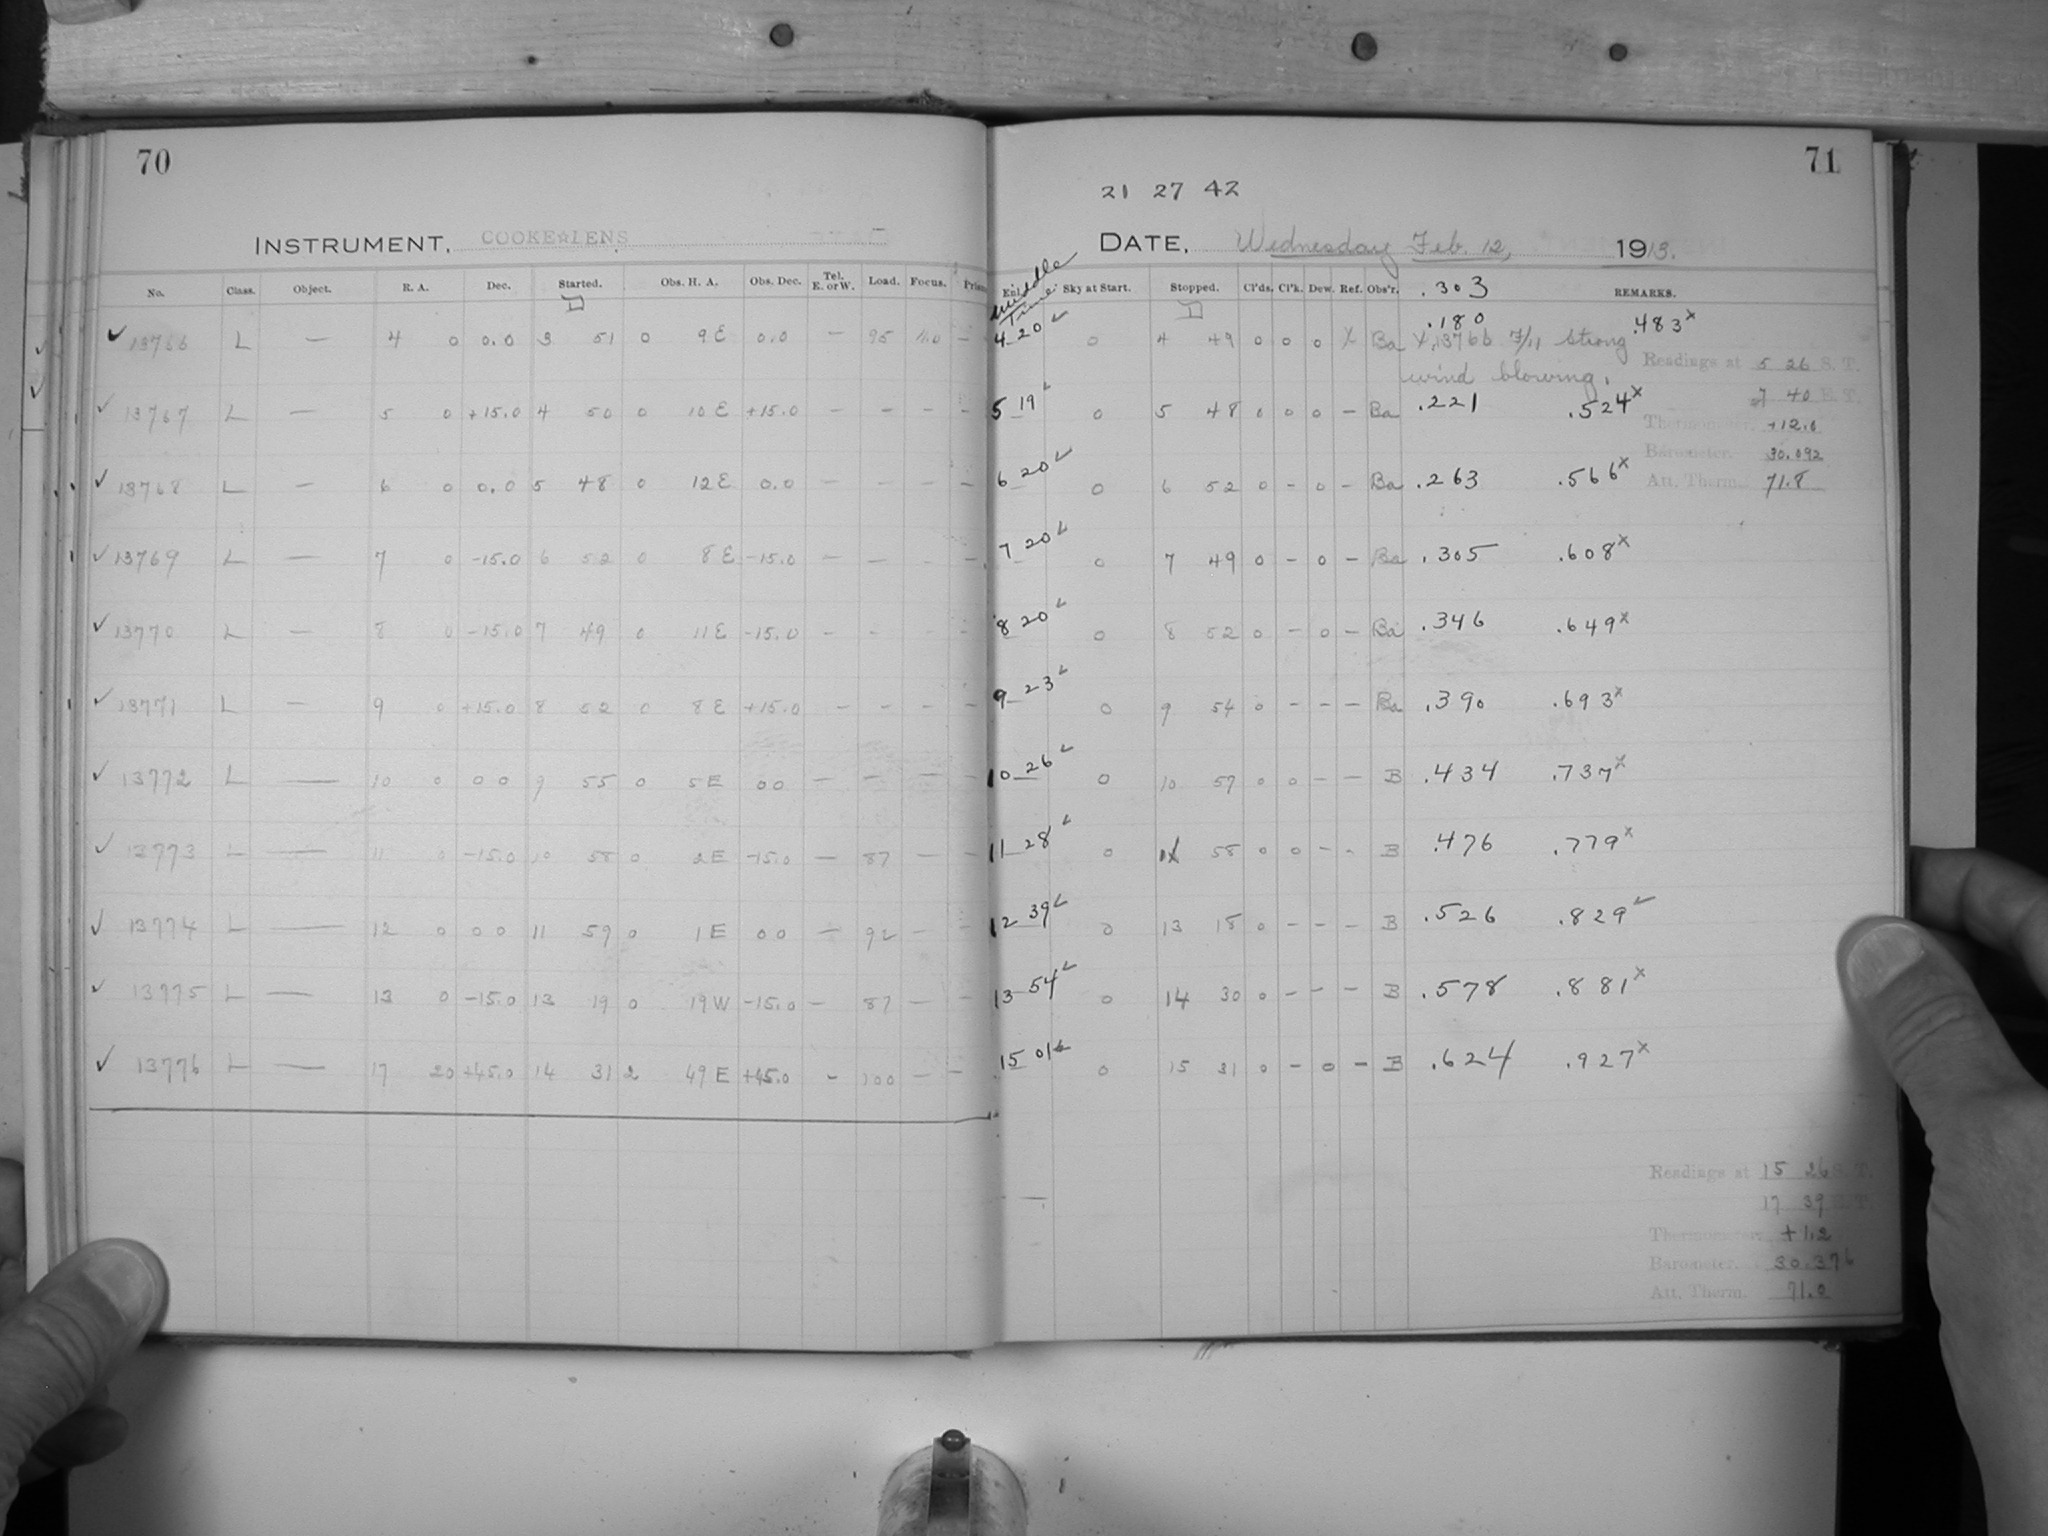 70
INSTRUMENT, COOKE☆LENS
No. Class. Object. R. A. Dec. Started. Obs. H. A. Obs. Dec. Tel. E. or W. Load. Focus.
✓ 13766 L — 4 0 0.0 3 51 0 9 E 0.0 — 95 —
✓ 13767 L — 5 0 +15.0 4 50 0 10 E +15.0 — — — —
✓ 13768 L — 6 0 0.0 5 48 0 12 E 0.0 — — — —
✓ 13769 L — 7 0 -15.0 6 52 0 8 E -15.0 — — — —
✓ 13770 L — 8 0 -15.0 7 49 0 11 E -15.0 — — — —
✓ 13771 L — 9 0 +15.0 8 52 0 8 E +15.0 — — — —
✓ 13772 L — 10 0 0 0 9 55 0 5 E 0 0 — — — —
✓ 13773 L — 11 0 -15.0 10 58 0 2 E -15.0 — 87 — —
✓ 13774 L — 12 0 0 0 11 59 0 1 E 0 0 — 92 — —
✓ 13775 L — 13 0 -15.0 13 19 0 19 W -15.0 — 87 — —
✓ 13776 L — 17 20 +45.0 14 31 2 49 E +45.0 — 100 — —
71
21 27 42
DATE, Wednesday Feb. 12, 1913.
middle Time
Sky at Start. Stopped. Cl'ds. Cl'k. Dew. Ref. Obs'r. .303 REMARKS.
.180 .483x
4 20 ✓ 0 4 49 0 0 0 X Ba X, 13766 F/11 strong
wind blowing.
5 19 ✓ 0 5 48 0 0 0 — Ba .221 .524x
6 20 ✓ 0 6 52 0 - 0 - Ba .263 .566x
7 20 ✓ 0 7 49 0 - 0 - Ba .305 .608x
8 20 ✓ 0 8 52 0 - 0 - Ba .346 .649x
9 23 ✓ 0 9 54 0 - - - Ba .390 .693x
10 26 ✓ 0 10 57 0 0 - - B .434 .737x
11 28 ✓ 0 11 58 0 0 - - B .476 .779x
12 39 ✓ 0 13 18 0 - - - B .526 .829 ✓
13 54 ✓ 0 14 30 0 - - - B .578 .881x
15 01 ✓ 0 15 31 0 - 0 - B .624 .927x
Readings at 5 26 S. T.
7 40 E. T.
Thermometer. +12.6
Barometer. 30.092
Att. Therm. 71.8
Readings at 15 26 S. T.
17 39 E. T.
Thermometer. +1.2
Barometer. 30.376
Att. Therm. 71.0